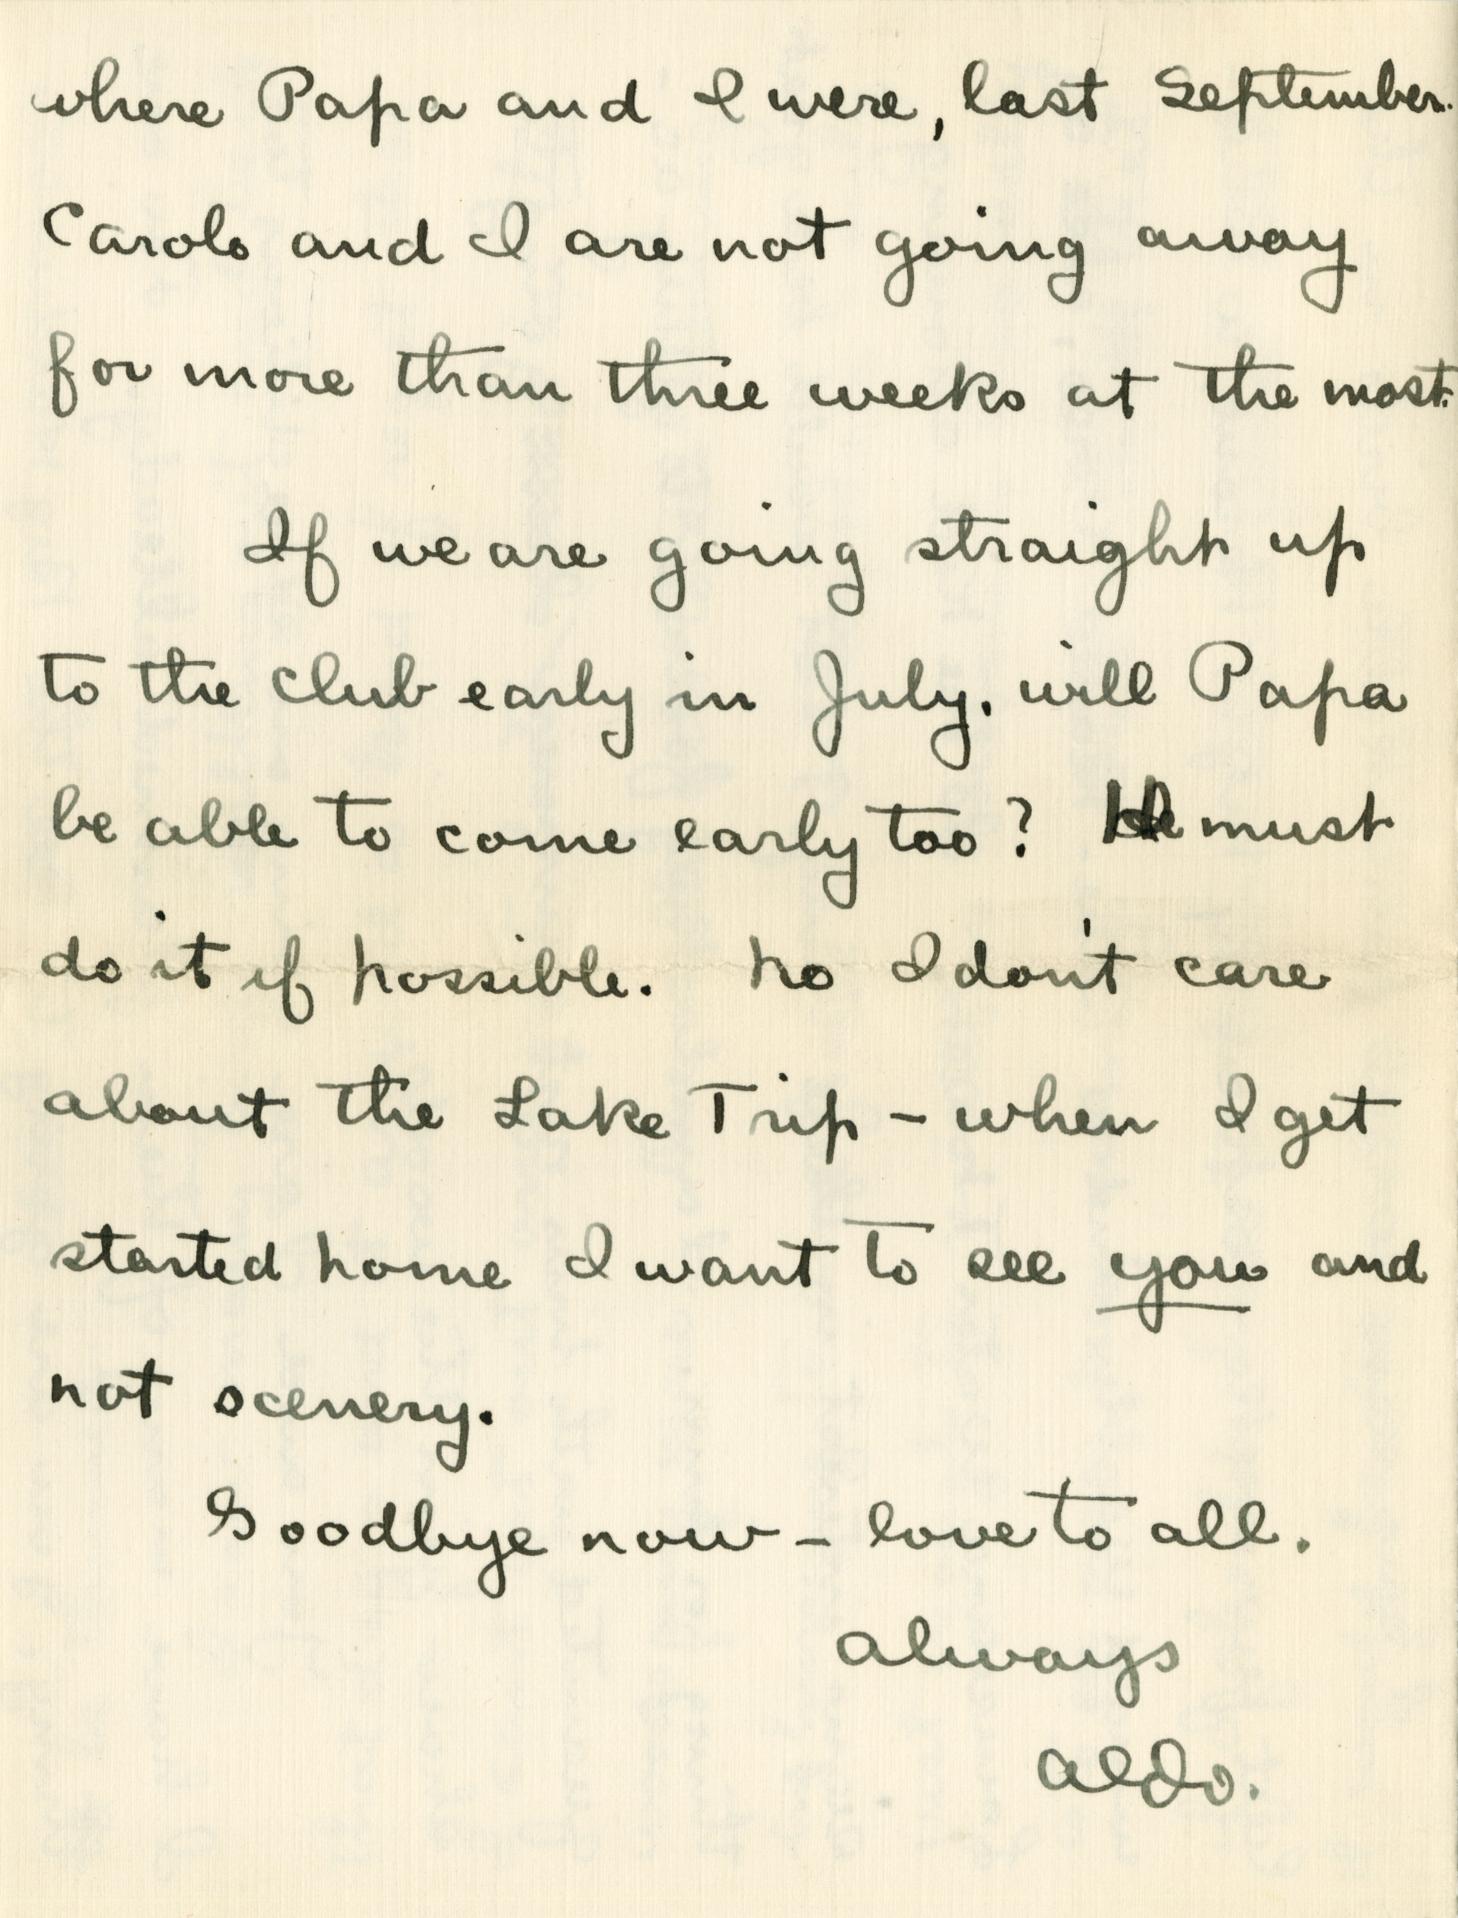 where Papa and I were, last September.
Carolo and I are not going away
for more than three weeks at the most.
If we are going straight up
to the Club early in July, will Papa
be able to come early too? He must
do it if possible. No I don't care
about the Lake Trip – when I get
started home I want to see you and
not scenery.
Goodbye now – love to all.
Always
Aldo.